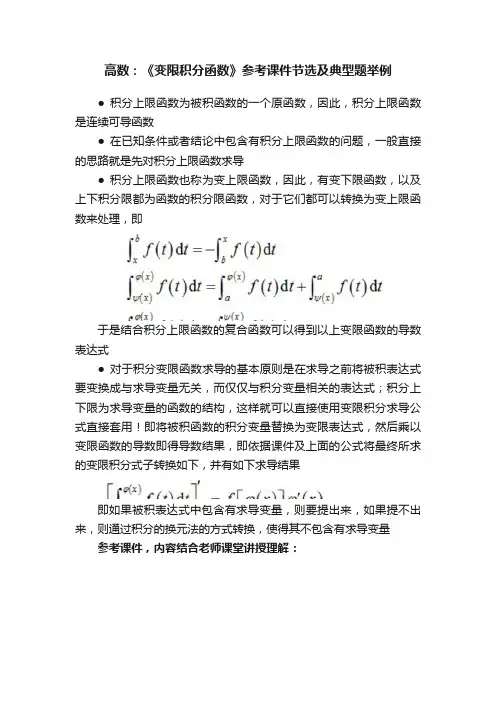 高数：《变限积分函数》参考课件节选及典型题举例
● 积分上限函数为被积函数的一个原函数，因此，积分上限函数
是连续可导函数
● 在已知条件或者结论中包含有积分上限函数的问题，一般直接
的思路就是先对积分上限函数求导
● 积分上限函数也称为变上限函数，因此，有变下限函数，以及
上下积分限都为函数的积分限函数，对于它们都可以转换为变上限函
数来处理，即
∫_x^b f(t)dt=-∫_b^x f(t)dt
∫_{ψ(x)}^{φ(x)} f(t)dt=∫_a^{φ(x)} f(t)dt+∫_{ψ(x)}^a f(t)dt
于是结合积分上限函数的复合函数可以得到以上变限函数的导数
表达式
● 对于积分变限函数求导的基本原则是在求导之前将被积表达式
要变换成与求导变量无关，而仅仅与积分变量相关的表达式；积分上
下限为求导变量的函数的结构，这样就可以直接使用变限积分求导公
式直接套用！即将被积函数的积分变量替换为变限表达式，然后乘以
变限函数的导数即得导数结果，即依据课件及上面的公式将最终所求
的变限积分式子转换如下，并有如下求导结果
[∫^{φ(x)} f(t)dt]′=f[φ(x)]φ′(x)
即如果被积表达式中包含有求导变量，则要提出来，如果提不出
来，则通过积分的换元法的方式转换，使得其不包含有求导变量
参考课件，内容结合老师课堂讲授理解：